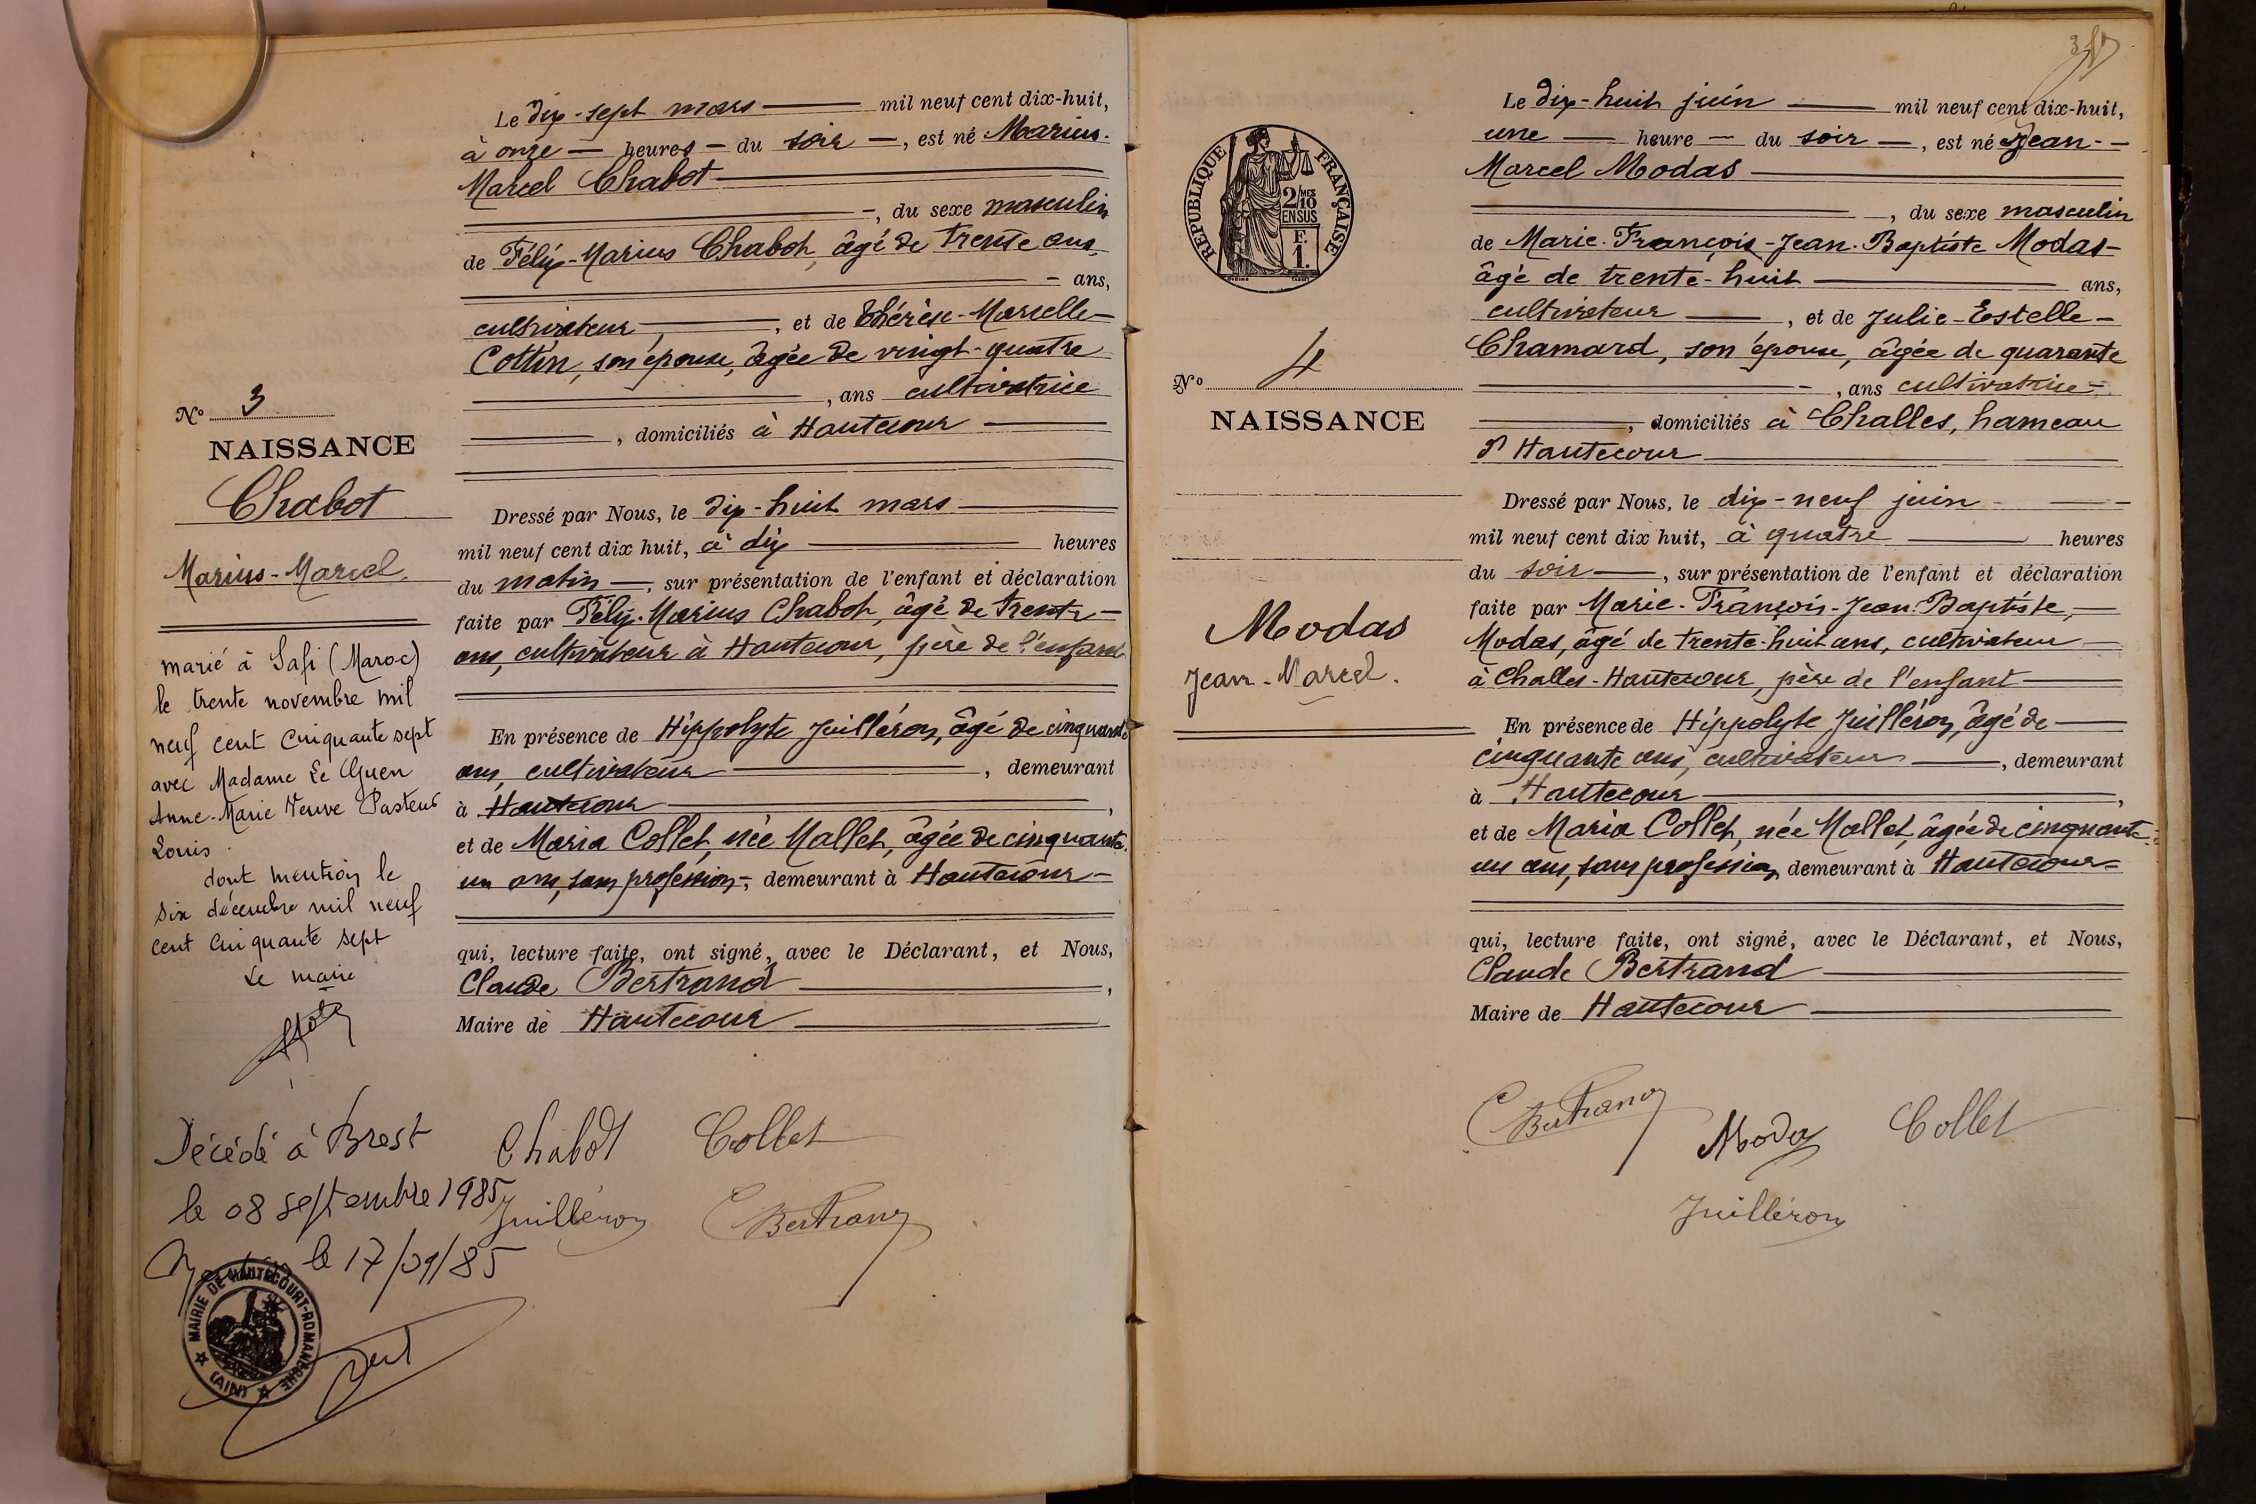 Le dix-sept mars mil neuf cent dix-huit,
à onze heures du soir, est né Marius-
Marcel Chabot
, du sexe masculin
de Félix-Marius Chabot, âgé de trente ans,
ans,
cultivateur, et de Thérèse-Marcelle
Cottin, son épouse, âgée de vingt-quatre
, ans cultivatrice
, domiciliés à Hautecour
No 3
NAISSANCE
Chabot
Marius-Marcel.
Dressé par Nous, le dix-huit mars
mil neuf cent dix huit, à dix heures
du matin, sur présentation de l'enfant et déclaration
faite par Félix-Marius Chabot, âgé de trente
ans, cultivateur à Hautecour, père de l'enfant
En présence de Hippolyte Juilléron, âgé de cinquante
ans, cultivateur, demeurant
à Hautecour,
et de Maria Collet, née Mallet, âgée de cinquante
un ans, sans profession, demeurant à Hautecour
qui, lecture faite, ont signé, avec le Déclarant, et Nous,
Claude Bertrand,
Maire de Hautecour
marié à Safi (Maroc)
le trente novembre mil
neuf cent cinquante sept
avec Madame Le Guen
Anne-Marie Veuve Pasteur
Louis.
dont mention le
six décembre mil neuf
cent cinquante sept
Le maire
Décédé à Brest
le 08 septembre 1985
le 17/09/85
MAIRIE DE HAUTECOURT-ROMANECHE
(AIN)
Chabot Collet
Juilléron C Bertrand
REPUBLIQUE FRANÇAISE
2/10 MES
EN SUS
F.
1.
No 4
NAISSANCE
Modas
Jean-Marcel.
Le dix-huit juin mil neuf cent dix-huit,
une heure du soir, est né Jean-
Marcel Modas
, du sexe masculin
de Marie-François-Jean-Baptiste Modas
âgé de trente-huit ans,
cultivateur, et de Julie-Estelle
Chamard, son épouse, âgée de quarante
, ans cultivatrice
, domiciliés à Challes, hameau
d'Hautecour
Dressé par Nous, le dix-neuf juin
mil neuf cent dix huit, à quatre heures
du soir, sur présentation de l'enfant et déclaration
faite par Marie-François-Jean-Baptiste,
Modas, âgé de trente-huit ans, cultivateur
à Challes-Hautecour, père de l'enfant
En présence de Hippolyte Juilléron, âgé de
cinquante ans, cultivateur, demeurant
à Hautecour,
et de Maria Collet, née Mallet, âgée de cinquante-
un ans, sans profession, demeurant à Hautecour
qui, lecture faite, ont signé, avec le Déclarant, et Nous,
Claude Bertrand
Maire de Hautecour
C Bertrand Modas Collet
Juilléron